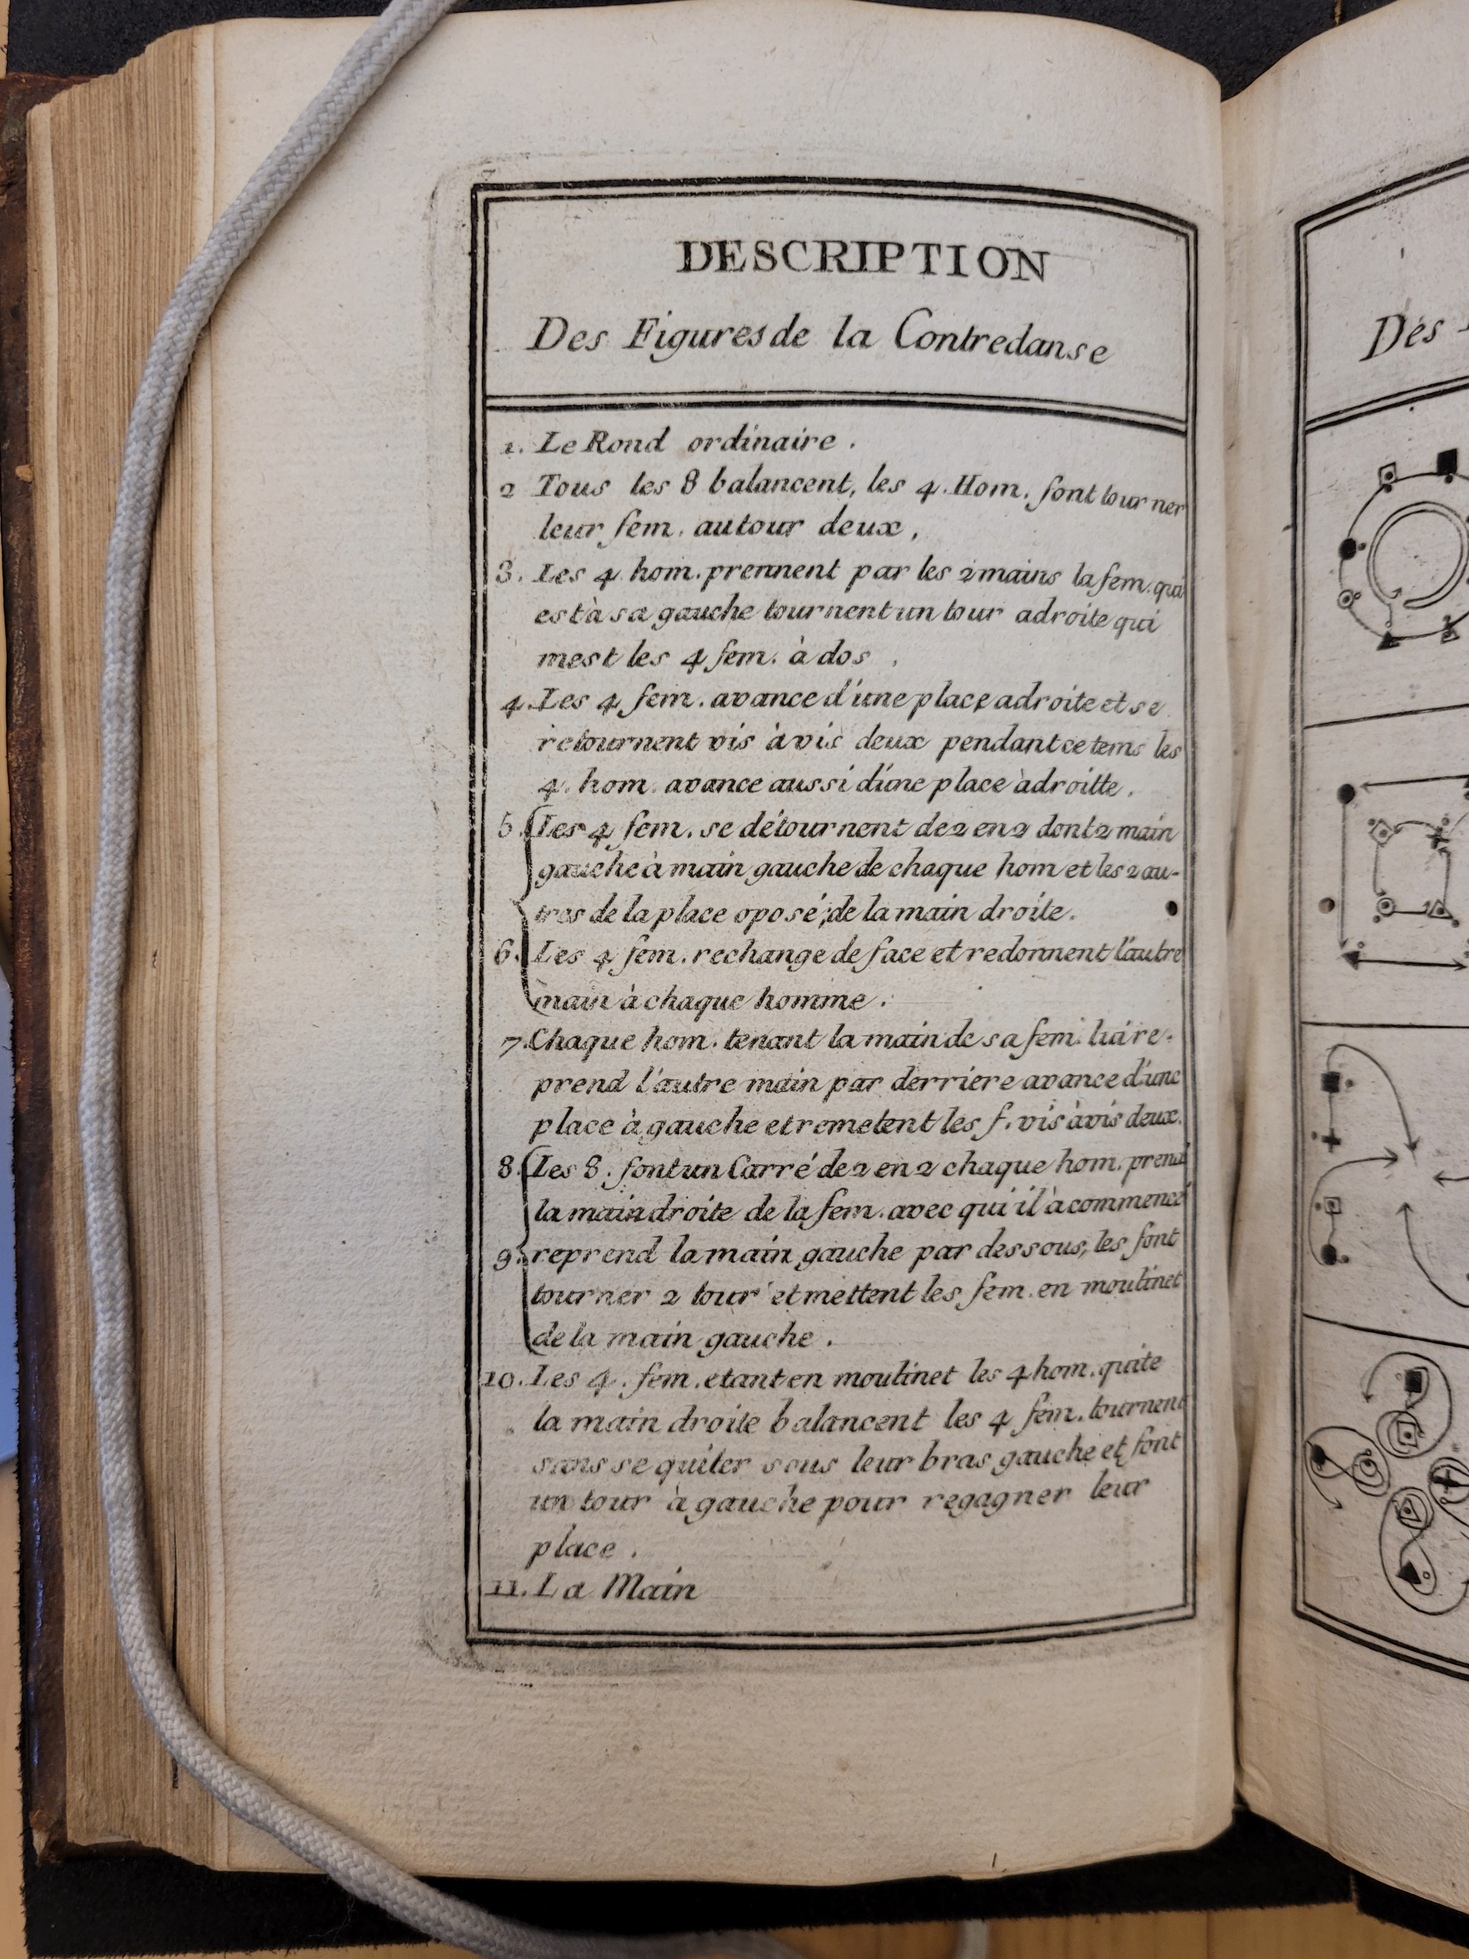 DESCRIPTION
Des Figures de la Contredanse
1. Le Rond ordinaire.
2 Tous les 8 balancent, les 4. Hom. font tourner
leur fem. autour deux,
3. Les 4 hom. prennent par les 2 mains la fem. qui
est à sa gauche tournent un tour adroite qui
mest les 4 fem. à dos,
4. Les 4 fem. avance d'une place adroite et se
retournent vis à vis deux pendant ce tems les
4. hom. avance aussi dune place àdroitte.
5. Les 4 fem. se détournent de 2 en 2 dont 2 main
gauche à main gauche de chaque hom et les 2 au-
tres de la place oposé, de la main droite.
6. Les 4 fem. rechange de face et redonnent l'autre
main à chaque homme.
7. Chaque hom. tenant la main de sa fem. lui re-
prend l'autre main par derriere avance d'une
place à gauche et remetent les f. vis àvis deux.
8. Les 8. font un Carré de 2 en 2 chaque hom. prend
la main droite de la fem. avec qui il à commencé
9. reprend la main gauche par dessous, les font
tourner 2 tour et mettent les fem. en moulinet
de la main gauche.
10. Les 4. fem. etant en moulinet les 4 hom. quite
la main droite balancent les 4 fem. tournent
sans se quiter sous leur bras gauche et font
un tour à gauche pour regagner leur
place.
11. La Main
Des